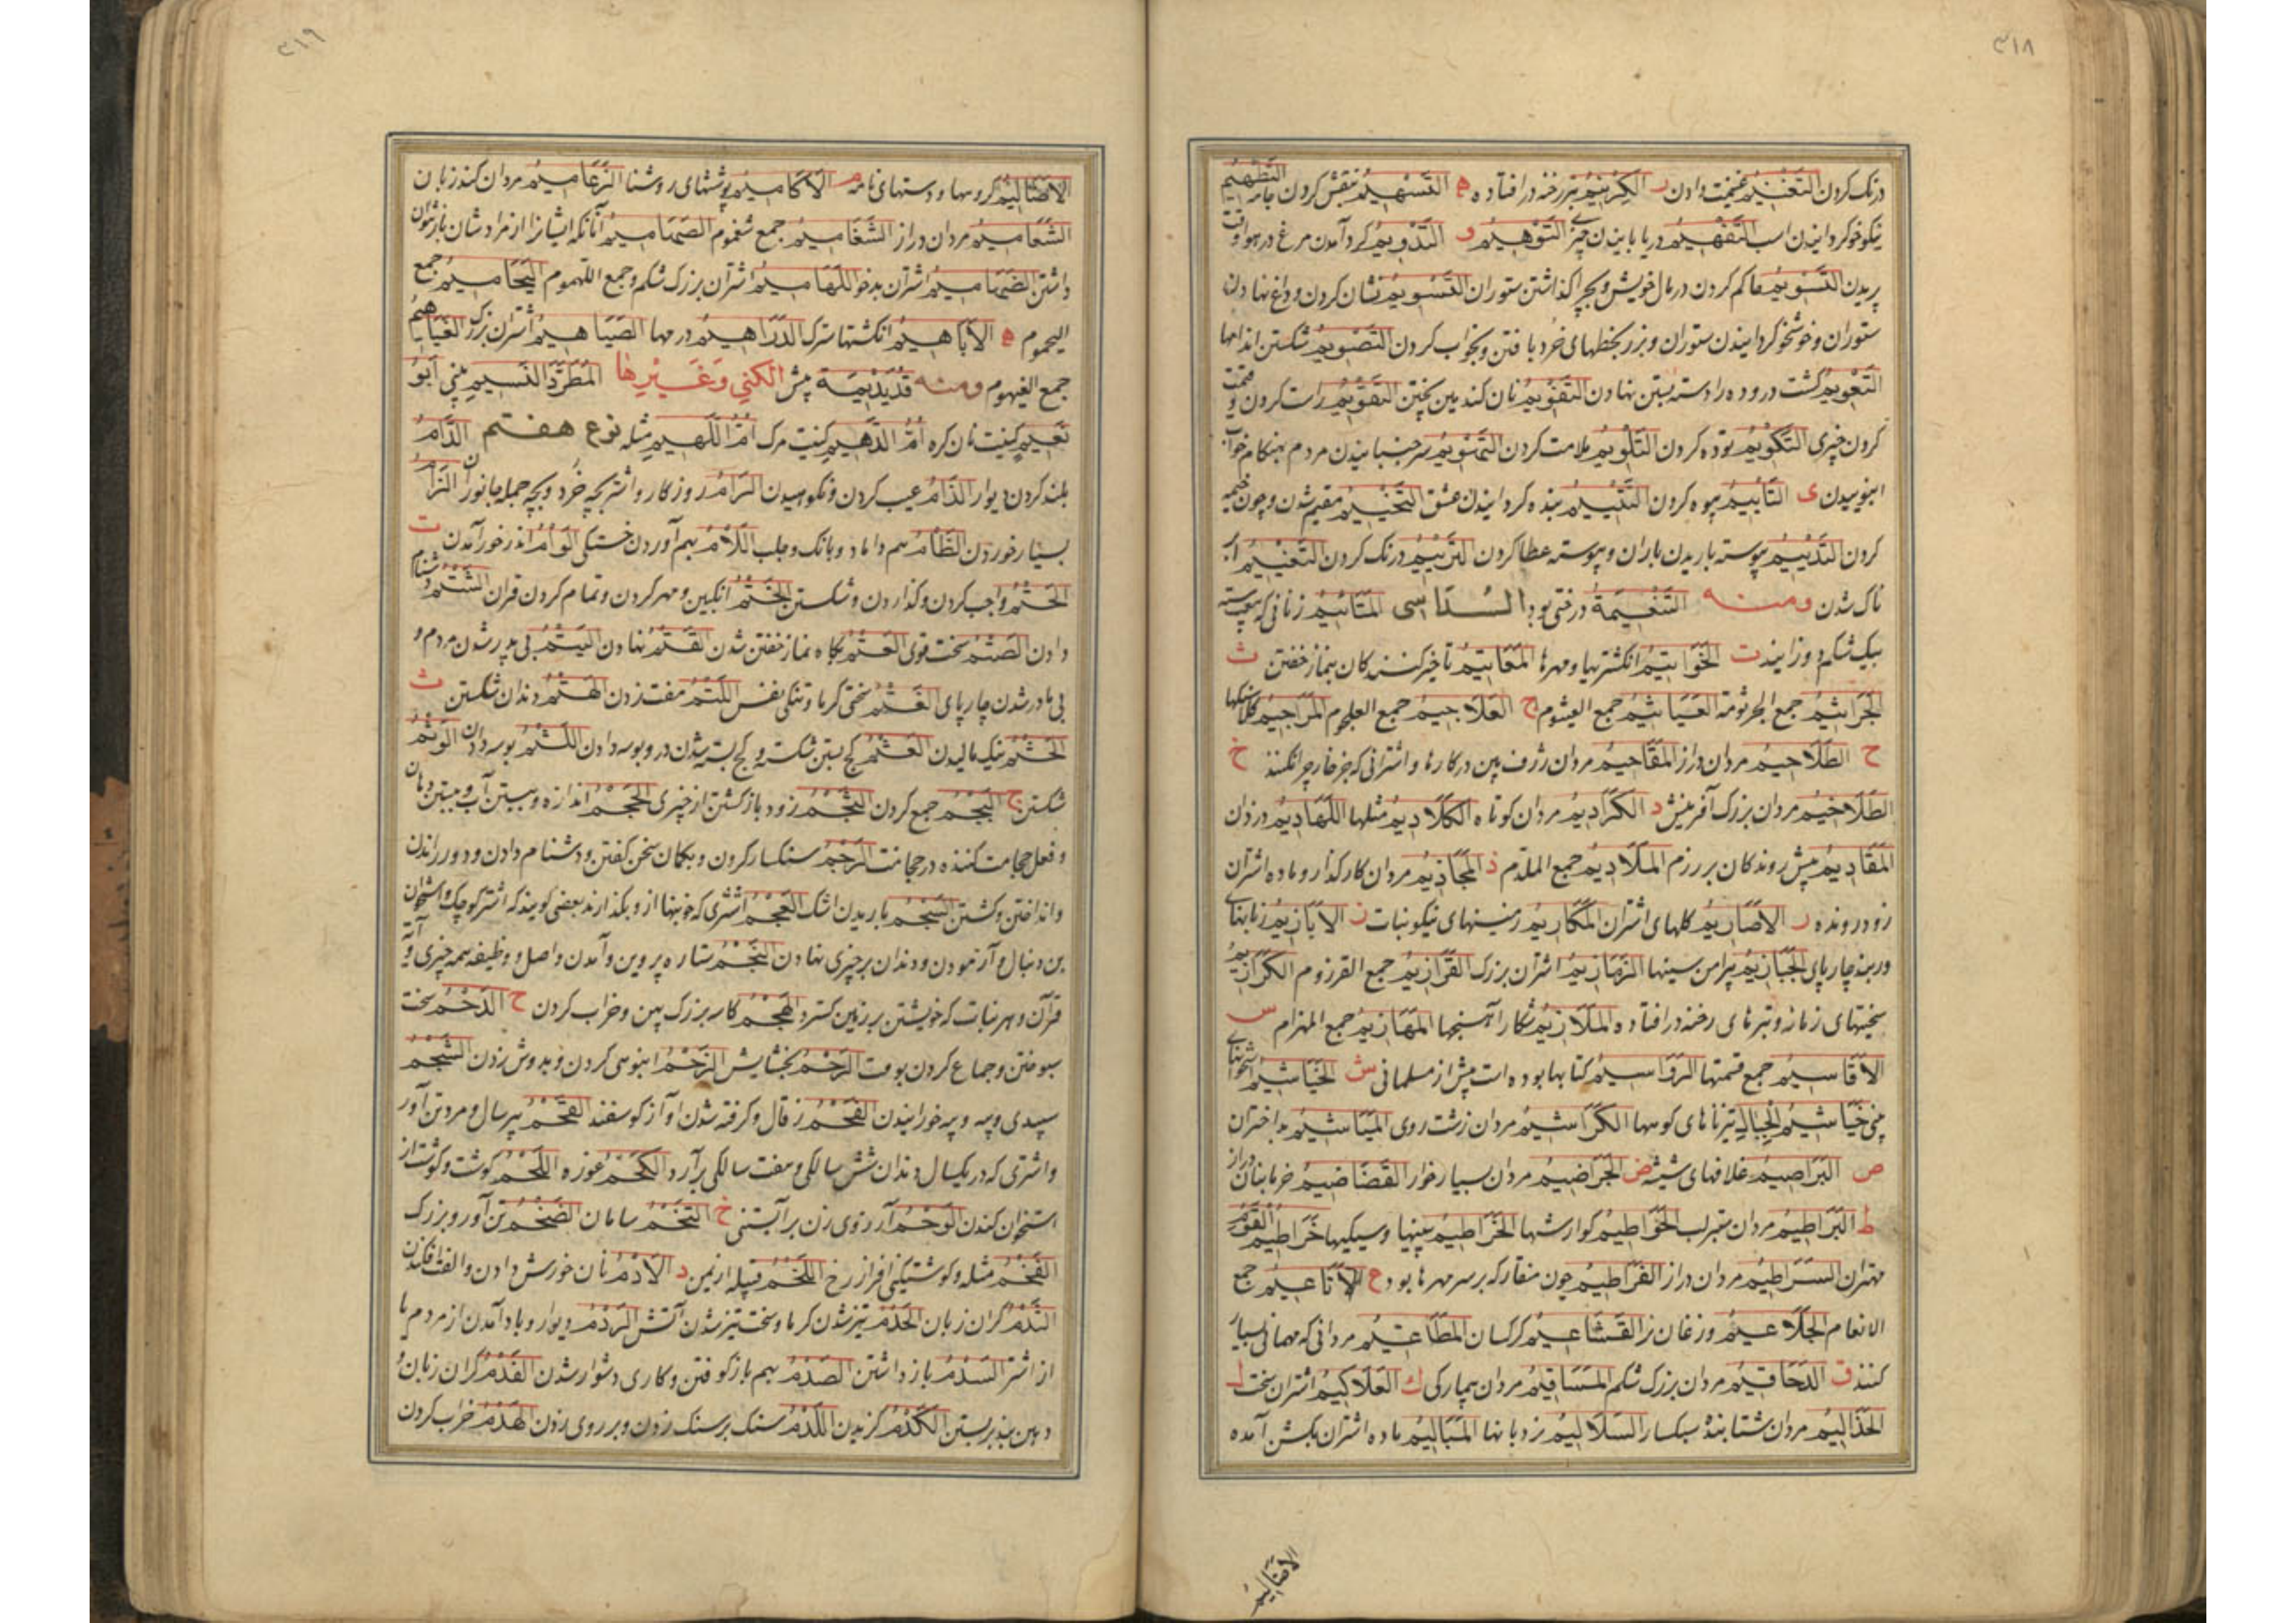 ۳۱۸
درنگ کردن التَغْنِیمُ غنیمت دادن ن الکِرْنِیمُ تبر رخنه درافتاده ه التَسْهِیمُ منقش کردن جامه التَطْهِیمُ
نیکو خو گردانیدن اسب التَفْهِیمُ دریابانیدن چیز التَوْهِیمُ و التَدْوِیمُ گرد آمدن مرغ در هوا وقت
پریدن التَسْوِیمُ حاکم کردن در مال خویش و بچرا گذاشتن ستوران التَسْوِیمُ نشان کردن و داغ نهادن
ستوران و خوشخو گردانیدن ستوران و بزر بخطهای خرد بافتن و بخواب کردن التَصْوِیمُ شکستن اندامها
التَعْوِیمُ کشت دروده را دسته بستن نهادن التَقْوِیمُ نان کندمین پختن التَقْوِیمُ راست کردن و قیمت
کردن چیزی التَکْوِیمُ توده کردن التَلْوِیمُ ملامت کردن التَنْوِیمُ سر جنبانیدن مردم بهنگام خواب
انبوییدن ی التَایِیمُ بیوه کردن التَتْیِیمُ بنده گردانیدن عشق التَخْیِیمُ مقیم شدن و چون خیمه
کردن التَدْیِیمُ پیوسته باریدن باران و پیوسته عطا کردن التَرْیِیمُ درنگ کردن التَغْیِیمُ ابر
ناک شدن ومنه التَنْعِیمَةُ درختی بود السُدَاسی المَتَائیمُ زنانی که پیوسته
بیک شکم دو زایند ت الخَوَاتِیمُ انگشتریها و مهرها المَعَاتِیمُ تاخیر کنندگان بنماز خفتن ث
الجَرَاثِیمُ جمع الجرثومة العَیَاثِیمُ جمع العیثوم ج العَلَاجِیمُ جمع العلجوم المَرَاجِیمُ کلاسنگها
ح الطَلَاحِیمُ مردان دراز المَقَاحِیمُ مردان ژرف بین در کارها و اشترانی که جز خار چرا نکنند خ
الطَلَاخِیمُ مردان بزرگ آفرینش د الکَرَادِیمُ مردان کوتاه الکَلَادِیمُ مثلها اللَهَادِیمُ دزدان
المَقَادِیمُ پیش روندکان بر رزم المَلَادِیمُ جمع الملدم ذ المَجَاذِیمُ مردان کار گذار و ماده اشتران
زود رونده ر الأَصَارِیمُ کلهای اشتران المَکَارِیمُ زمینهای نیکو نبات ز الأَبَازِیمُ زبانهای
دربند چارپای الحَیَازِیمُ پیرامن سینها الزَهَازِیمُ اشتران بزرک القَرَازِیمُ جمع القرزوم الکَرَازِیمُ
سختیهای زمانه و تبرهای رخنه درافتاده المَلَازِیمُ شکار آهنجها المَهَازِیمُ جمع المهزام س
الأَقَاسِیمُ جمع قسمتها الرَوَاسِیمُ کتابها بوده است پیش از مسلمانی ش الخَیَاشِیمُ استخوانهای
بینی خَیَاشِیمُ الجِبَالِ تیزناهای کوهها الکَرَاشِیمُ مردان زشت روی المَیَاشِیمُ بد اختران
ص البَرَاصِیمُ غلافهای شیشه ض الجَرَاضِیمُ مردان بسیار خوار القَضَاضِیمُ خرمابنان دراز
ط البَرَاطِیمُ مردان ستبر لب الحَوَاطِیمُ گوارشها الخَرَاطِیمُ بینیها وسیکیها خَرَاطِیمُ القَوْمِ
مهتران السَرَاطِیمُ مردان دراز القَرَاطِیمُ چون منقار که بر سر مهرها بود ع الأَنَاعِیمُ جمع
الانعام الجَلَاعِیمُ وزغان نر القَشَاعِیمُ کرکسان المَطَاعِیمُ مردانی که مهمانی بسیار
کنند ق الدَحَاقِیمُ مردان بزرگ شکم المَسَاقِیمُ مردان بیمارکی ك العَلَاکِیمُ اشتران سخت ل
الحَذَالِیمُ مردان شتابنده سبکسار السَلَالِیمُ نردبانها المَبَالِیمُ ماده اشتران بکشن آمده
الاضالیم
۳۱۹
الاضَالِیمُ کروهها و دستهای نامه م الأَکَامِیمُ پوششهای روشنا الزَعَامِیمُ مردان کند زبان
الشَعَامِیمُ مردان دراز الشَغَامِیمُ جمع شغموم الصَهَامِیمُ آنانکه ایشانرا از مرادشان باز نتوان
داشتن الضَهَامِیمُ اشتران بدخو اللَهَامِیمُ اشتران بزرک شکم و جمع اللهموم الیَحَامِیمُ جمع
الیحموم ه الأَبَاهِیمُ انگشتها سترک الدَرَاهِیمُ درمها الصَیَاهِیمُ اشتران بزرک الغَیَاهِیمُ
جمع الغیهوم ومنه قُدَیْدِیْمَة پیش الکُنی وَغَیْرِها المُطَرَّدُ النَسِیمِ بینی أَبُو
نَعِیمٍ کنیت نان کره أُمُّ الدُهَیْمِ کنیت مرک أُمُّ اللُهَیْمِ مثله نوع هفتم الدَأْمُ
بلند کردن دیوار الذَأْمُ عیب کردن و نکوهیدن الرَأْمُ روزکار و اشتر بچه خرد و بچه جمله جانوران الزَأْمُ
بسیار خوردن الظَأْمُ هم داماد و بانک و جلب اللَأْمُ بهم آوردن خستکی الوَأْمُ اندر خور آمدن ت
الحَتْمُ واجب کردن و گذاردن و شکستن الخَتْمُ انگبین و مهر کردن و تمام کردن قران الشَتْمُ دشنام
دادن الصَتْمُ سخت قوی العَتْمُ بکاه نماز خفتن شدن القَتْمُ نهادن الیَتْمُ بی پدر شدن مردم و
بی مادر شدن چارپای الغَتْمُ سختی گرما و تنکی نفس اللَتْمُ مفت زدن الهَتْمُ دندان شکستن ث
الحَثْمُ نیک مالیدن العَثْمُ کج بستن شکسته و کج بسته شدن در و بوسه دادن اللَثْمُ بوسه دادن الوَثْمُ
شکستن ج البَجْمُ جمع کردن الثَجْمُ زود باز کشتن از چیزی الحَجْمُ اندازه و بستن آب و بستن دهان
و فعل حجامت کننده در حجامت الرَجْمُ سنکسار کردن و بگمان سخن گفتن و دشنام دادن و دور راندن
و انداختن و کشتن السَجْمُ باریدن اشک العَجْمُ اشتری که خونبها ازو بگذارند بعضی گویند که اشتر کوچک و استخوان
بن دنبال و آزمودن و دندان بر چیزی نهادن النَجْمُ ستاره پروین و آمدن و اصل و وظیفه همه چیزی و آیة
قرآن و هر نبات که خویشتن بر زمین کسترد الهَجْمُ کاسه بزرک پهن و خراب کردن ح الدَحْمُ سخت
سپوختن و جماع کردن بوقت الرَحْمُ بخشایش الزَحْمُ انبوهی کردن و بدوش زدن الشَحْمُ
سپیدی و پیه و پیه خورانیدن الفَحْمُ زقال و گرفته شدن آواز کوسفند القَحْمُ پیر سال و مرد تن آور
و اشتری که در یکسال دندان شش سالکی و هفت سالکی برآرد الکَحْمُ غوزه اللَحْمُ گوشت و گوشت از
استخوان کندن الوَحْمُ آرزوی زن بر آبستنی خ التَخْمُ سامان الضَخْمُ تن آور و بزرک
الفَخْمُ مثله و گوشتکین افراز رخ اللَخْمُ قبیله از یمن د الأَدْمُ نان خورش دادن و الفت افکندن
الثَدْمُ کران زبان الحَدْمُ تیز شدن کرما و سخت تیز شدن آتش الرَدْمُ دیوار و باد آمدن از مردم یا
از اشتر السَدْمُ باز داشتن الصَدْمُ بهم باز کوفتن و کاری دشوار شدن الفَدْمُ کران زبان و
دهن بند بر بستن الکَدْمُ گزیدن اللَدْمُ سنک بر سنک زدن و بر روی زدن الهَدْمُ خراب کردن